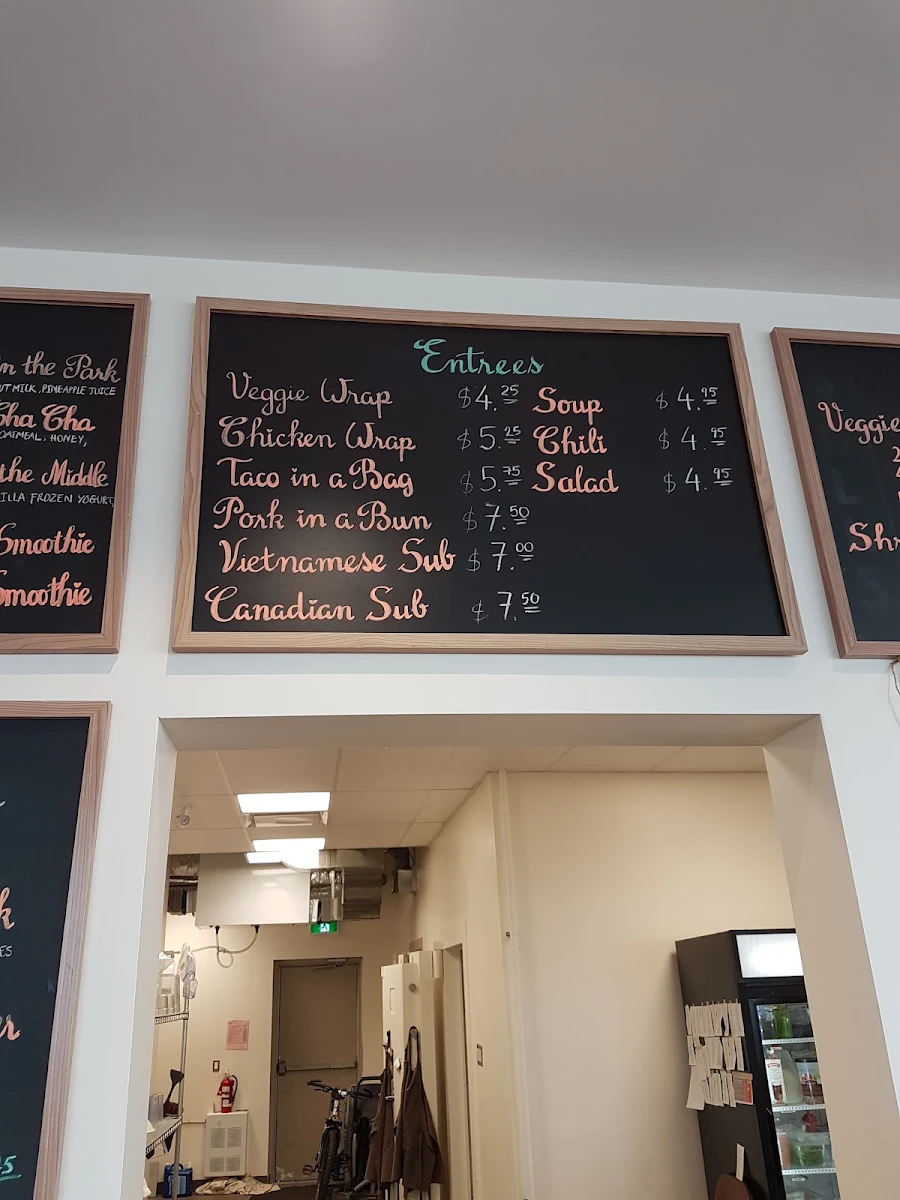 n the Park
UT MILK, PINEAPPLE JUICE
Cha Cha
OATMEAL, HONEY,
the Middle
ILLA FROZEN YOGURT
Smoothie
Smoothie
Entrees
Veggie Wrap $4.25
Chicken Wrap $5.25
Taco in a Bag $5.75
Pork in a Bun $7.50
Vietnamese Sub $7.00
Canadian Sub $7.50
Soup $4.95
Chili $4.95
Salad $4.95
Veggie
Shr
k
ES
r
5